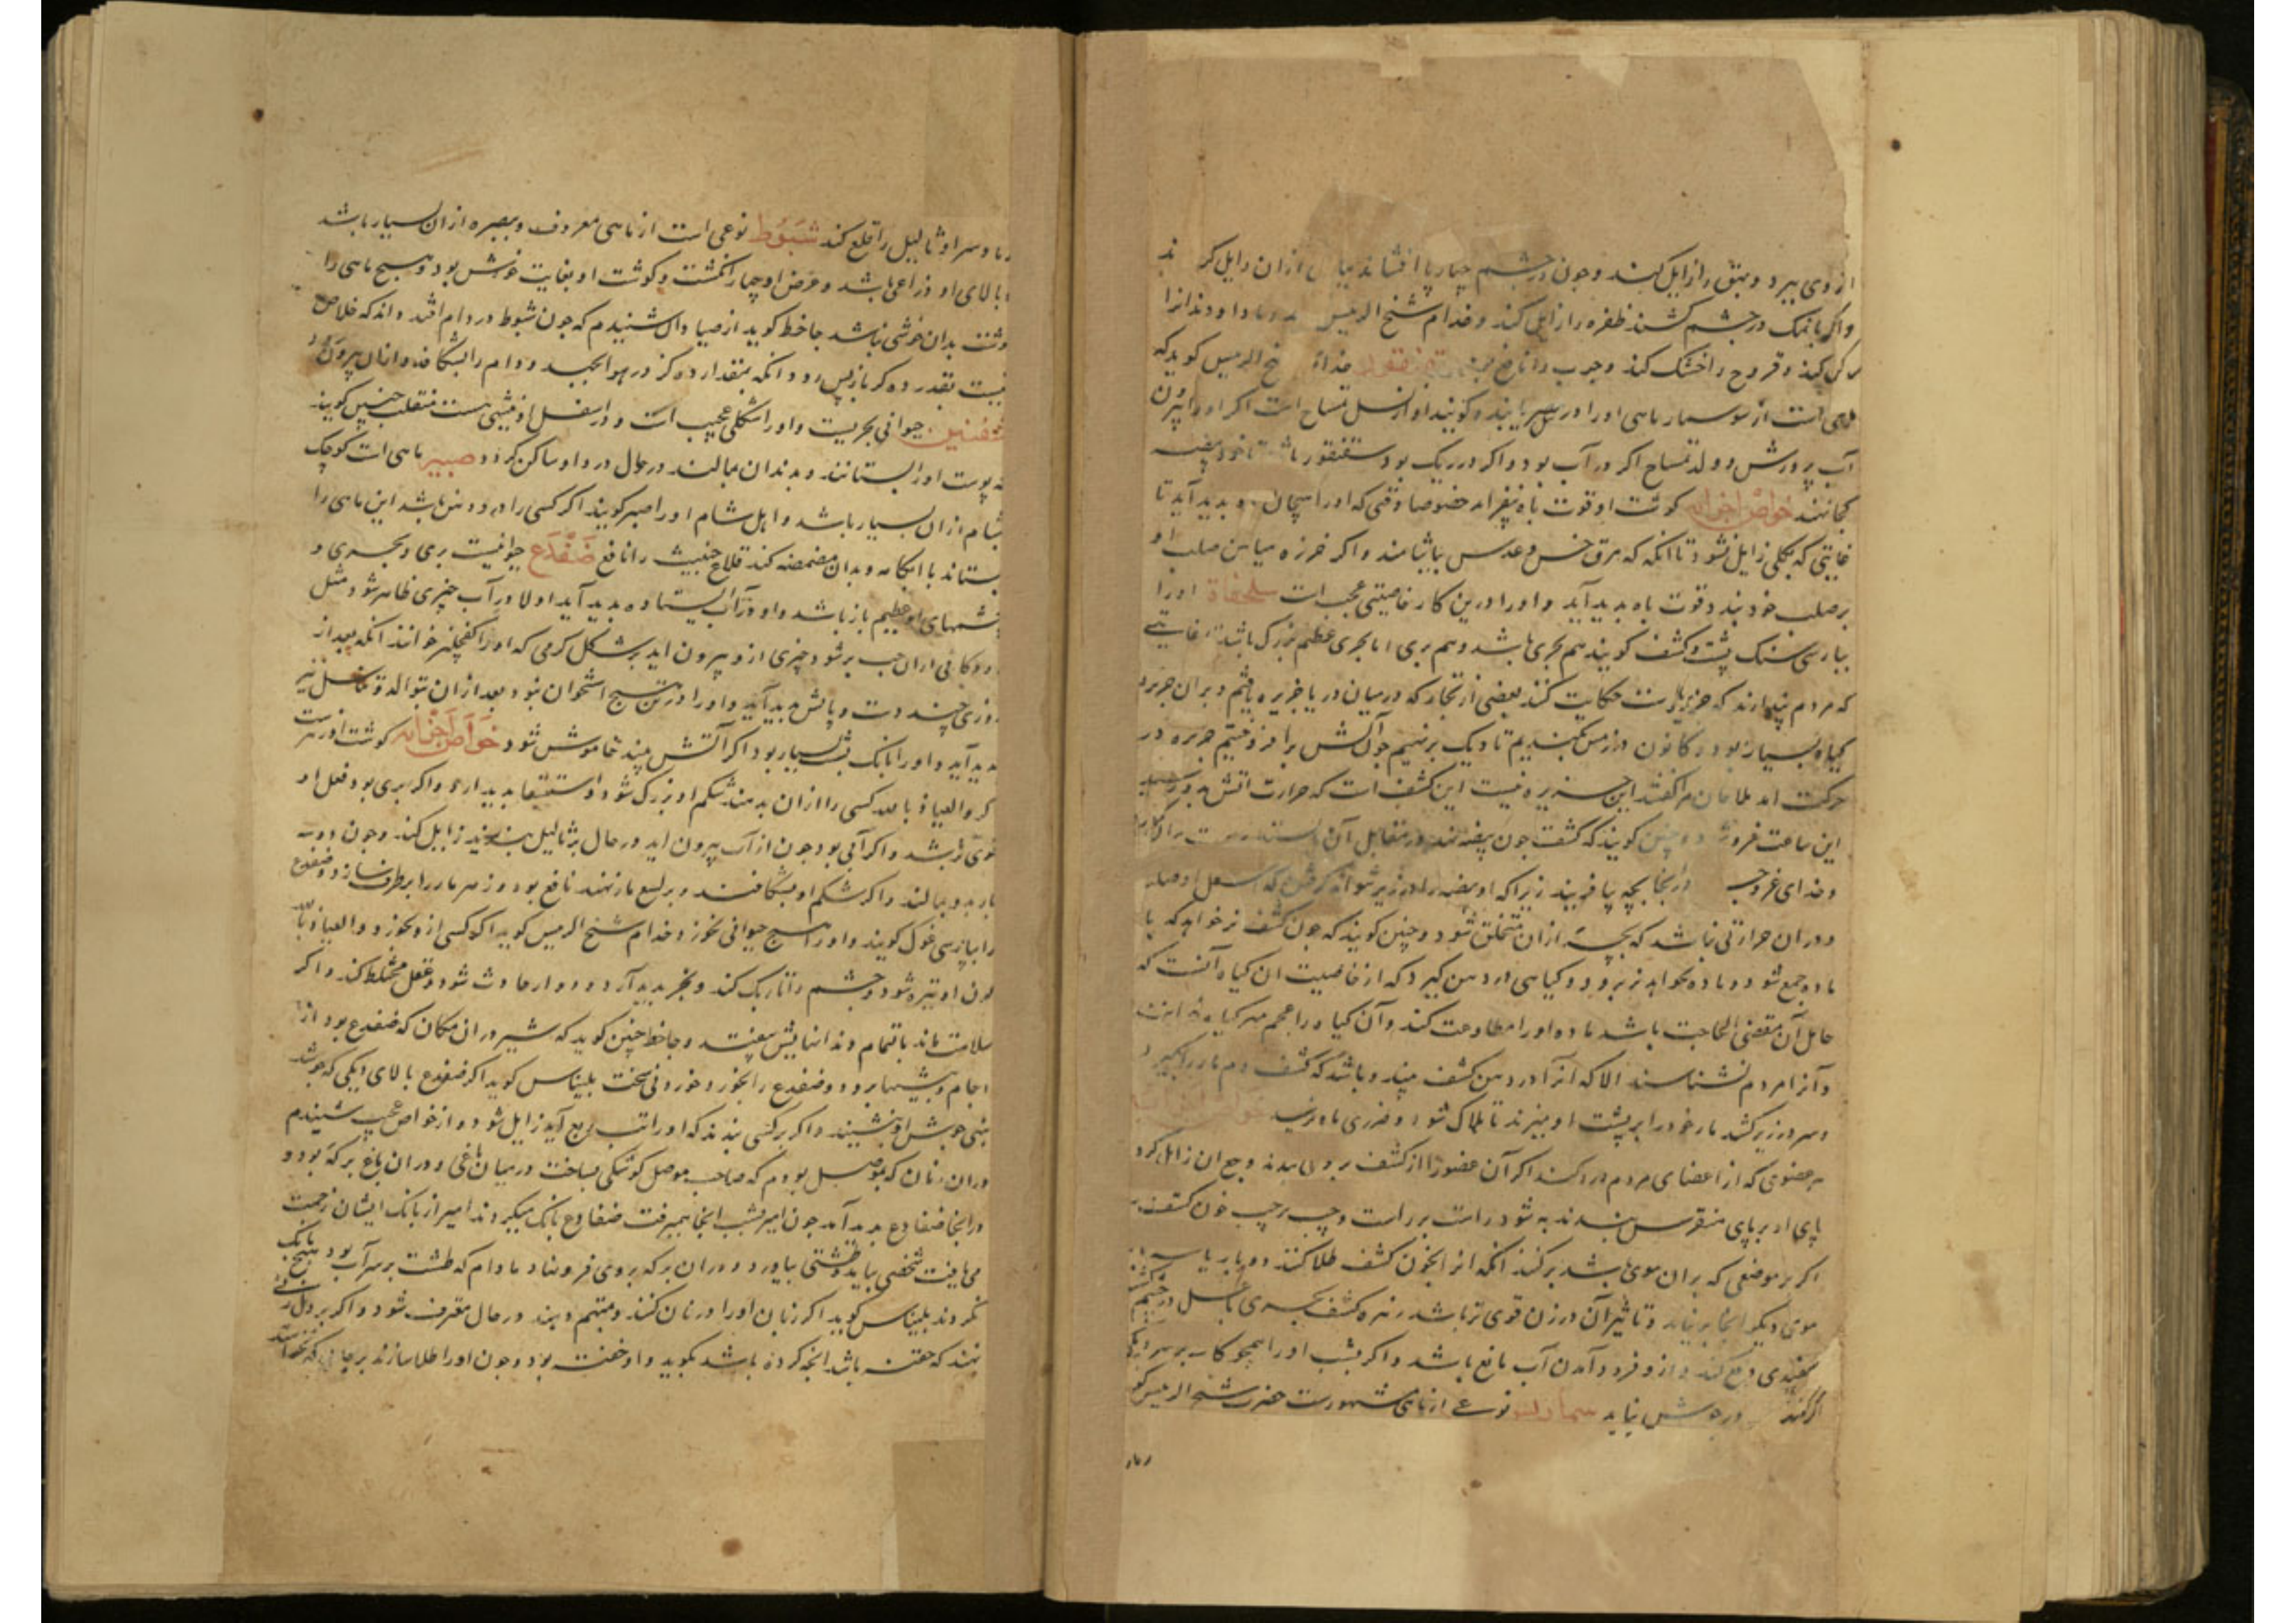 از وی ببرد و بهق را زایل کند و چون در چشم چهارپا افشانند بیاض ازان زایل کر ند
واکر بانمک در چشم کشند ظفره را زایل کند و خدام شیخ الرییس دندانرا
کند و قروح را خشک کند و جرب را نافع بود سقنقور خدام شیخ الرییس کوید که
ماهی است از سوسمار ماهی اورا در نیل مصر یابند و کویند او از نسل تمساح است اکر اورا بیرون
آب پرورش دولد تمساح اکر در آب بود واکر در ریک بود سقنقور باشد تا خود بیضه
کجا نهند خواص اجزایه کوشت او قوت باه بیفزاید خصوصا وقتی که اورا بدید آید تا
غایتی که بکلی زایل نشود تا انکه که مرق خس و عدس بیاشامند واکر خرزه میان صلب او
بر صلب خود بندد قوت باه بدید آید و اورا درین کار خاصیتی عجب است سلحفاة اورا
بپارسی سنک پشت و کشف کویند هم بحری باشد و هم بری اما بحری عظیم بزرک باشد تا غایتی
که مردم پندارند که جزیره است حکایت کنند بعضی از تجار که در میان دریا جزیره یافتیم و بران جزیره
کیاه بسیار بود کانون در زمین بکندیم تا دیک بر نهیم چون آتش برافروختیم جزیره در
حرکت امد ملاحان مرا کفتند این جزیره نیست این کشف است که حرارت آتش بدو رسید
این ساعت فرو شود و چنین کویند که کشف چون بیضه نهد در مقابل آن
وخدای عزوجل درانجا بچه بیافریند زیرا که او بیضه را در زیر نتواند کرفتن که اسفل او صلب
ودران حرارتی نباشد که بچه ازان متخلق شود و چنین کویند که چون کشف نر خواهد که با
ماده جمع شود و ماده نخواهد نر برود و کیاهی در دهن کیرد که از خاصیت ان کیاه آنست که
حامل آن مقضی الحاجت باشد ماده اورا مطاوعت کند وآن کیاه را عجم مهر کیاه خوانند
وآنرا مردم نشناسند الا که آنرا در دهن کشف بینند و باشد که کشف دم مار را بکیرد و
وسر در زیر کشد مار خود را بر پشت او میزند تا هلاک شود و ضرری بدو نرسد خواص اجزایه
هر عضوی که از اعضای مردم درد کند اکر آن عضو را از کشف برو بندند وجع ان زایل کردد
پای او بر پای منقرس بندند به شود راست بر راست و چپ بر چپ خون کشف
اکر بر موضعی که بران موی باشد برکنند انکه انرا بخون کشف طلا کنند دو بار یا سه
موی دیکر انجا بر نیاید و تاثیر آن در زن قوی تر باشد زهره کشف بحری با عسل در چشم
سفیدی دفع کند و از فرود آمدن آب مانع باشد واکر بشب اورا همچو کاسه بر سر دیک
اکر نهند در جوش نیاید سمارلس نوعی از ماهی مشهورست حضرت شیخ الرییس کوید
رماد
رماد سر او ثالیل را قلع کند شبوط نوعی است از ماهی معروف و ببصره ازان بسیار باشد
بالای او ذراعی باشد و عرض او چهار انکشت و کوشت او بغایت خوش بود و هیچ ماهی را
کوشت بدان خوشی نباشد جاحظ کوید از صیادان شنیدم که چون شبوط در دام افتد داند که خلاص
نیست بقدر ده کز باز پس رود انکه بمقدار ده کز در هوا بجهد و دام را بشکافد و ازان بیرون رود
شفنین حیوانی بحریست واورا شکلی عجیب است و در اسفل او نیشی هست منقلب چنین کویند
که پوست اورا بستانند و بدندان بمالند در حال درد او ساکن کردد صبیر ماهی است کوچک
بشام ازان بسیار باشد و اهل شام اورا صبیر کویند اکر کسی را درد دهن باشد این ماهی را
بستاند با ابکامه و بدان مضمضه کند قلاع خبیث را نافع ضفدع حیوانیست بری و بحری و
چشمهای او عظیم باز باشد واو در آب ایستاده بدید آید اولا در آب چیزی ظاهر شود مثل
و دوکانی ازان حب بر شود چیزی ازو بیرون اید بر شکل کرمی که اورا کفچلیز خوانند انکه بعد از
روزی چند دست و پایش بدید آید واورا در تن هیچ استخوان نبود بعد ازان توالد و تناسل نیز
بدید آید و اورا بانک بشب بسیار بود اکر آتش بیند خاموش شود خواص اجزایه کوشت او زهرست
کر والعیاذ بالله کسی را ازان بدهند شکم او بزرک شود و استسقا بدید آرد واکر بری بود فعل او
قوی تر باشد واکر آبی بود چون از آب بیرون اید در حال بر ثالیل بندند زایل کند و چون دو سه
بار بدو بمالند واکر شکم او بشکافند و بر لسع مار نهند نافع بود و زهر مار را برطرف سازد و ضفدع
را بپارسی غوک کویند و اورا هیچ حیوانی نخورد و خدام شیخ الرییس کوید اکر کسی ازو بخورد والعیاذ بالله
لون او تیره شود و چشم را تاریک کند و بخر بدید آرد و دوار حادث شود و عقل مختلط کند واکر
سلامت ماند باتمام دندانهایش بیفتد و جاحظ چنین کوید که شیر دران مکان که ضفدع بود از
اجام و بیشها برود و ضفدع را بخورد خوردنی سخت بلیناس کوید اکر ضفدع بالای دیکی که جوشد
بنهی جوشش او بنشیند واکر بر کسی بندند که اورا تب ربع آید زایل شود و از خواص عجیب شنیدم
دران زمان که بموصل بودم که صاحب موصل کوشکی بساخت در میان باغی و دران باغ برکه بود و
درانجا ضفادع بدید آمد چون امیر بشب انجا میرفت ضفادع بانک میکردند امیر از بانک ایشان زحمت
می یافت شخصی بیامد و طشتی بیاورد و دران برکه بروی فرو نهاد مادام که طشت بر سر آب بود هیچ بانک
نکردند بلیناس کوید اکر زبان اورا در نان کنند و بمتهم دهند در حال معترف شود واکر بر دل زنی
نهند که خفته باشد انچه کرده باشد بکوید واو خفته بود و چون اورا طلا سازند بر جایی که نخواستند